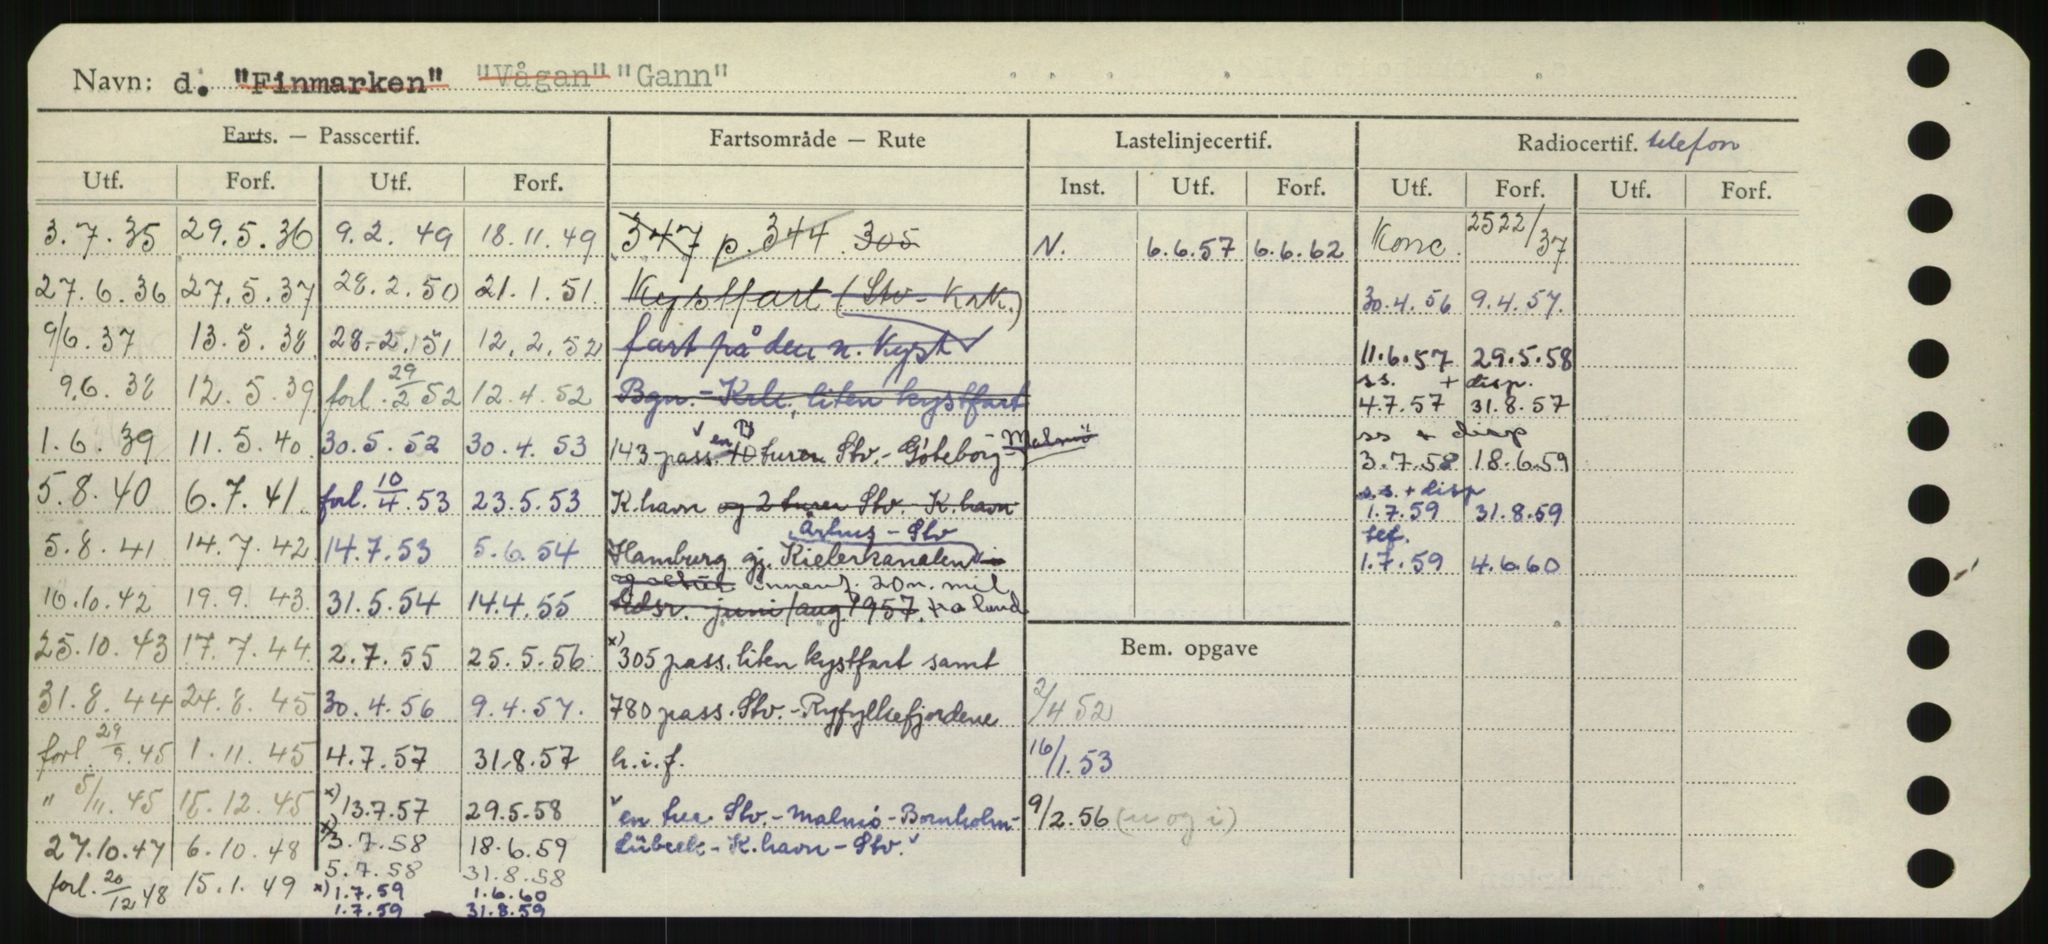 Navn: d. "Finmarken" "Vågan" "Gann"
Farts. — Passcertif. Fartsområde — Rute Lastelinjecertif. Radiocertif. telefon
Utf. Forf. Utf. Forf. Inst. Utf. Forf. Utf. Forf. Utf. Forf.
3.7.35 29.5.36 9.2.49 18.11.49 347 p. 344 305 N. 6.6.57 6.6.62 Konc. 2522/37
27.6.36 27.5.37 28.2.50 21.1.51 Kystfart (Stv - Krk.) 30.4.56 9.4.57.
9/6.37 13.5.38 28.2.51 12.2.52 fart på den n. Kyst 11.6.57 29.5.58
9.6.38 12.5.39 forl. 29/2 52 12.4.52 Bgn. - Krk., liten kystfart ss. + disp. 4.7.57 31.8.57
1.6.39 11.5.40 30.5.52 30.4.53 143 pass. en 10 turen Stv. - Göteborg - Malmö ss + disp 3.7.58 18.6.59
5.8.40 6.7.41 forl. 10/4.53 23.5.53 K.havn og 2 turer Stv. K.havn s.s. + disp 1.7.59 31.8.59
Århus - Stv
5.8.41 14.7.42 14.7.53 5.6.54 Hamburg gj. Kielerkanalen tef. 1.7.59 4.6.60
innenf. 20 n. mil
16.10.42 19.9.43. 31.5.54 14.4.55 juni/aug 1957. fra land
25.10.43 17.7.44 2.7.55 25.5.56 x) 305 pass. liten kystfart samt Bem. opgave
31.8.44 24.8.45 30.4.56 9.4.57. 780 pass. Stv. - Ryfylkefjordene 2/4 52
forl. 29/9.45 1.11.45 4.7.57 31.8.57 h.i.f. 16/1.53
" 5/11.45 15.12.45 x) 13.7.57 29.5.58 en tur Stv. - Malmö - Bornholm - 9/2.56 (u og i)
27.10.47 6.10.48 x) 3.7.58 18.6.59 Lübeck - K.havn - Stv.
5.7.58 31.8.58
forl. 20/12 48 15.1.49 x) 1.7.59 1.6.60
1.7.59 31.8.59